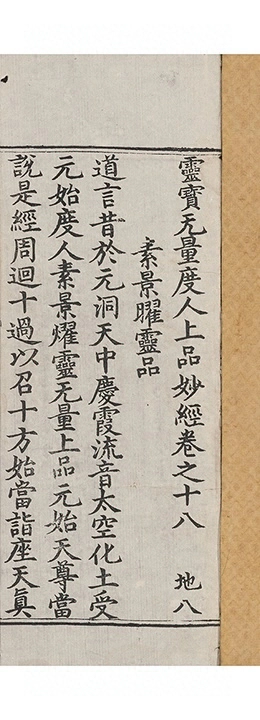 靈寶无量度人上品妙經卷之十八 地八
素景曜靈品
道言昔於元洞天中慶霞流音太空化土受
元始度人素景燿靈无量上品元始天尊當
說是經周迴十過以召十方始當詣座天真